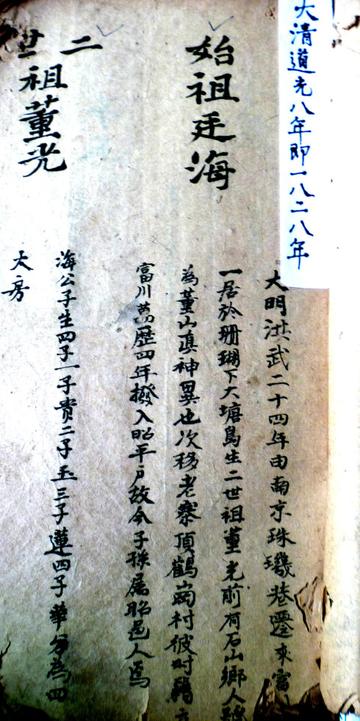 大清道光八年即一八二八年
始祖廷海
大明洪武二十四年由南京珠璣巷遷來富
一居於珊瑚下大塘島生二世祖董光前有石山鄉人
為董山真神異也次移老寨頂鶴崗村彼时
富川萬歷四年撥入昭平戶故今子孫属昭邑人焉
二世祖董光
海公子生四子一子貴二子玉三子蓮四子華分為四
大房